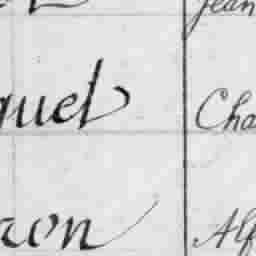 Jean
quet Cha
ron Alf